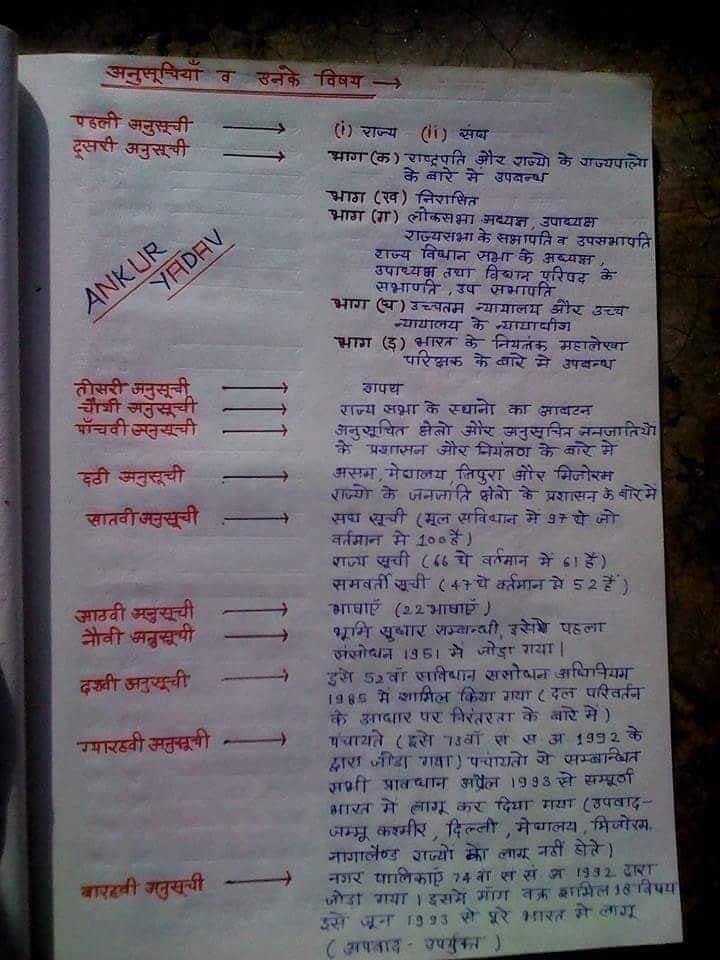 अनुसूचियाँ व उनके विषय →
पहली अनुसूची → (i) राज्य (ii) संघ
दूसरी अनुसूची → भाग (क) राष्ट्रपति और राज्यो के राज्यपालो
के बारे में उपबन्ध
भाग (ख) निरासित
भाग (ग) लोकसभा अध्यक्ष, उपाध्यक्ष
राज्यसभा के सभापति व उपसभापति
राज्य विधान सभा के अध्यक्ष,
उपाध्यक्ष तथा विधान परिषद के
सभापति, उप सभापति
ANKUR
YADAV
भाग (घ) उच्चतम न्यायालय और उच्च
न्यायालय के न्यायाधीश
भाग (ड़) भारत के नियंतक महालेखा
परिक्षक के बारे मे उपबन्ध
तीसरी अनुसूची → शपथ
चौथी अनुसूची → राज्य सभा के स्थानो का आवटन
पाँचवी अनुसूची → अनुसूचित क्षेत्रो और अनुसूचित जनजातियो
के प्रशासन और नियंत्रण के बारे में
छठी अनुसूची → असम, मेघालय, त्रिपुरा और मिजोरम
राज्यो के जनजाति क्षेत्रो के प्रशासन के बारे में
सातवी अनुसूची → संघ सूची (मूल सविधान मे 97 थे जो
वर्तमान मे 100 है)
राज्य सूची (66 थे वर्तमान में 61 है)
समवर्ती सूची (47 थे वर्तमान मे 52 है)
आठवी अनुसूची → भाषाएँ (22 भाषाएँ)
नौवी अनुसूची → भूमि सुधार सम्बन्धी, इसे पहला
संसोधन 1951 में जोड़ा गया।
दसवी अनुसूची → इसे 52वाँ सविधान ससोधन अधिनियम
1985 में शामिल किया गया (दल परिवर्तन
के आधार पर निरंतरता के बारे में)
ग्यारहवी अनुसूची → पंचायते (इसे 73वाँ स स अ 1992 के
द्वारा जोडा गया) पचायतो से सम्बन्धित
सभी प्रावधान अप्रैल 1993 से सम्पूर्ण
भारत मे लागू कर दिया गया (उपवाद-
जम्मू कश्मीर, दिल्ली, मेघालय, मिजोरम,
नागालैण्ड राज्यो को लागू नही होते)
बारहवी अनुसूची → नगर पालिकाएँ 74वाँ स सं अ 1992 द्वारा
जोडा गया। इसमे शामिल 18 विषय
इसे जून 1993 से पूरे भारत मे लागू
(अपवाद - उपर्युक्त)